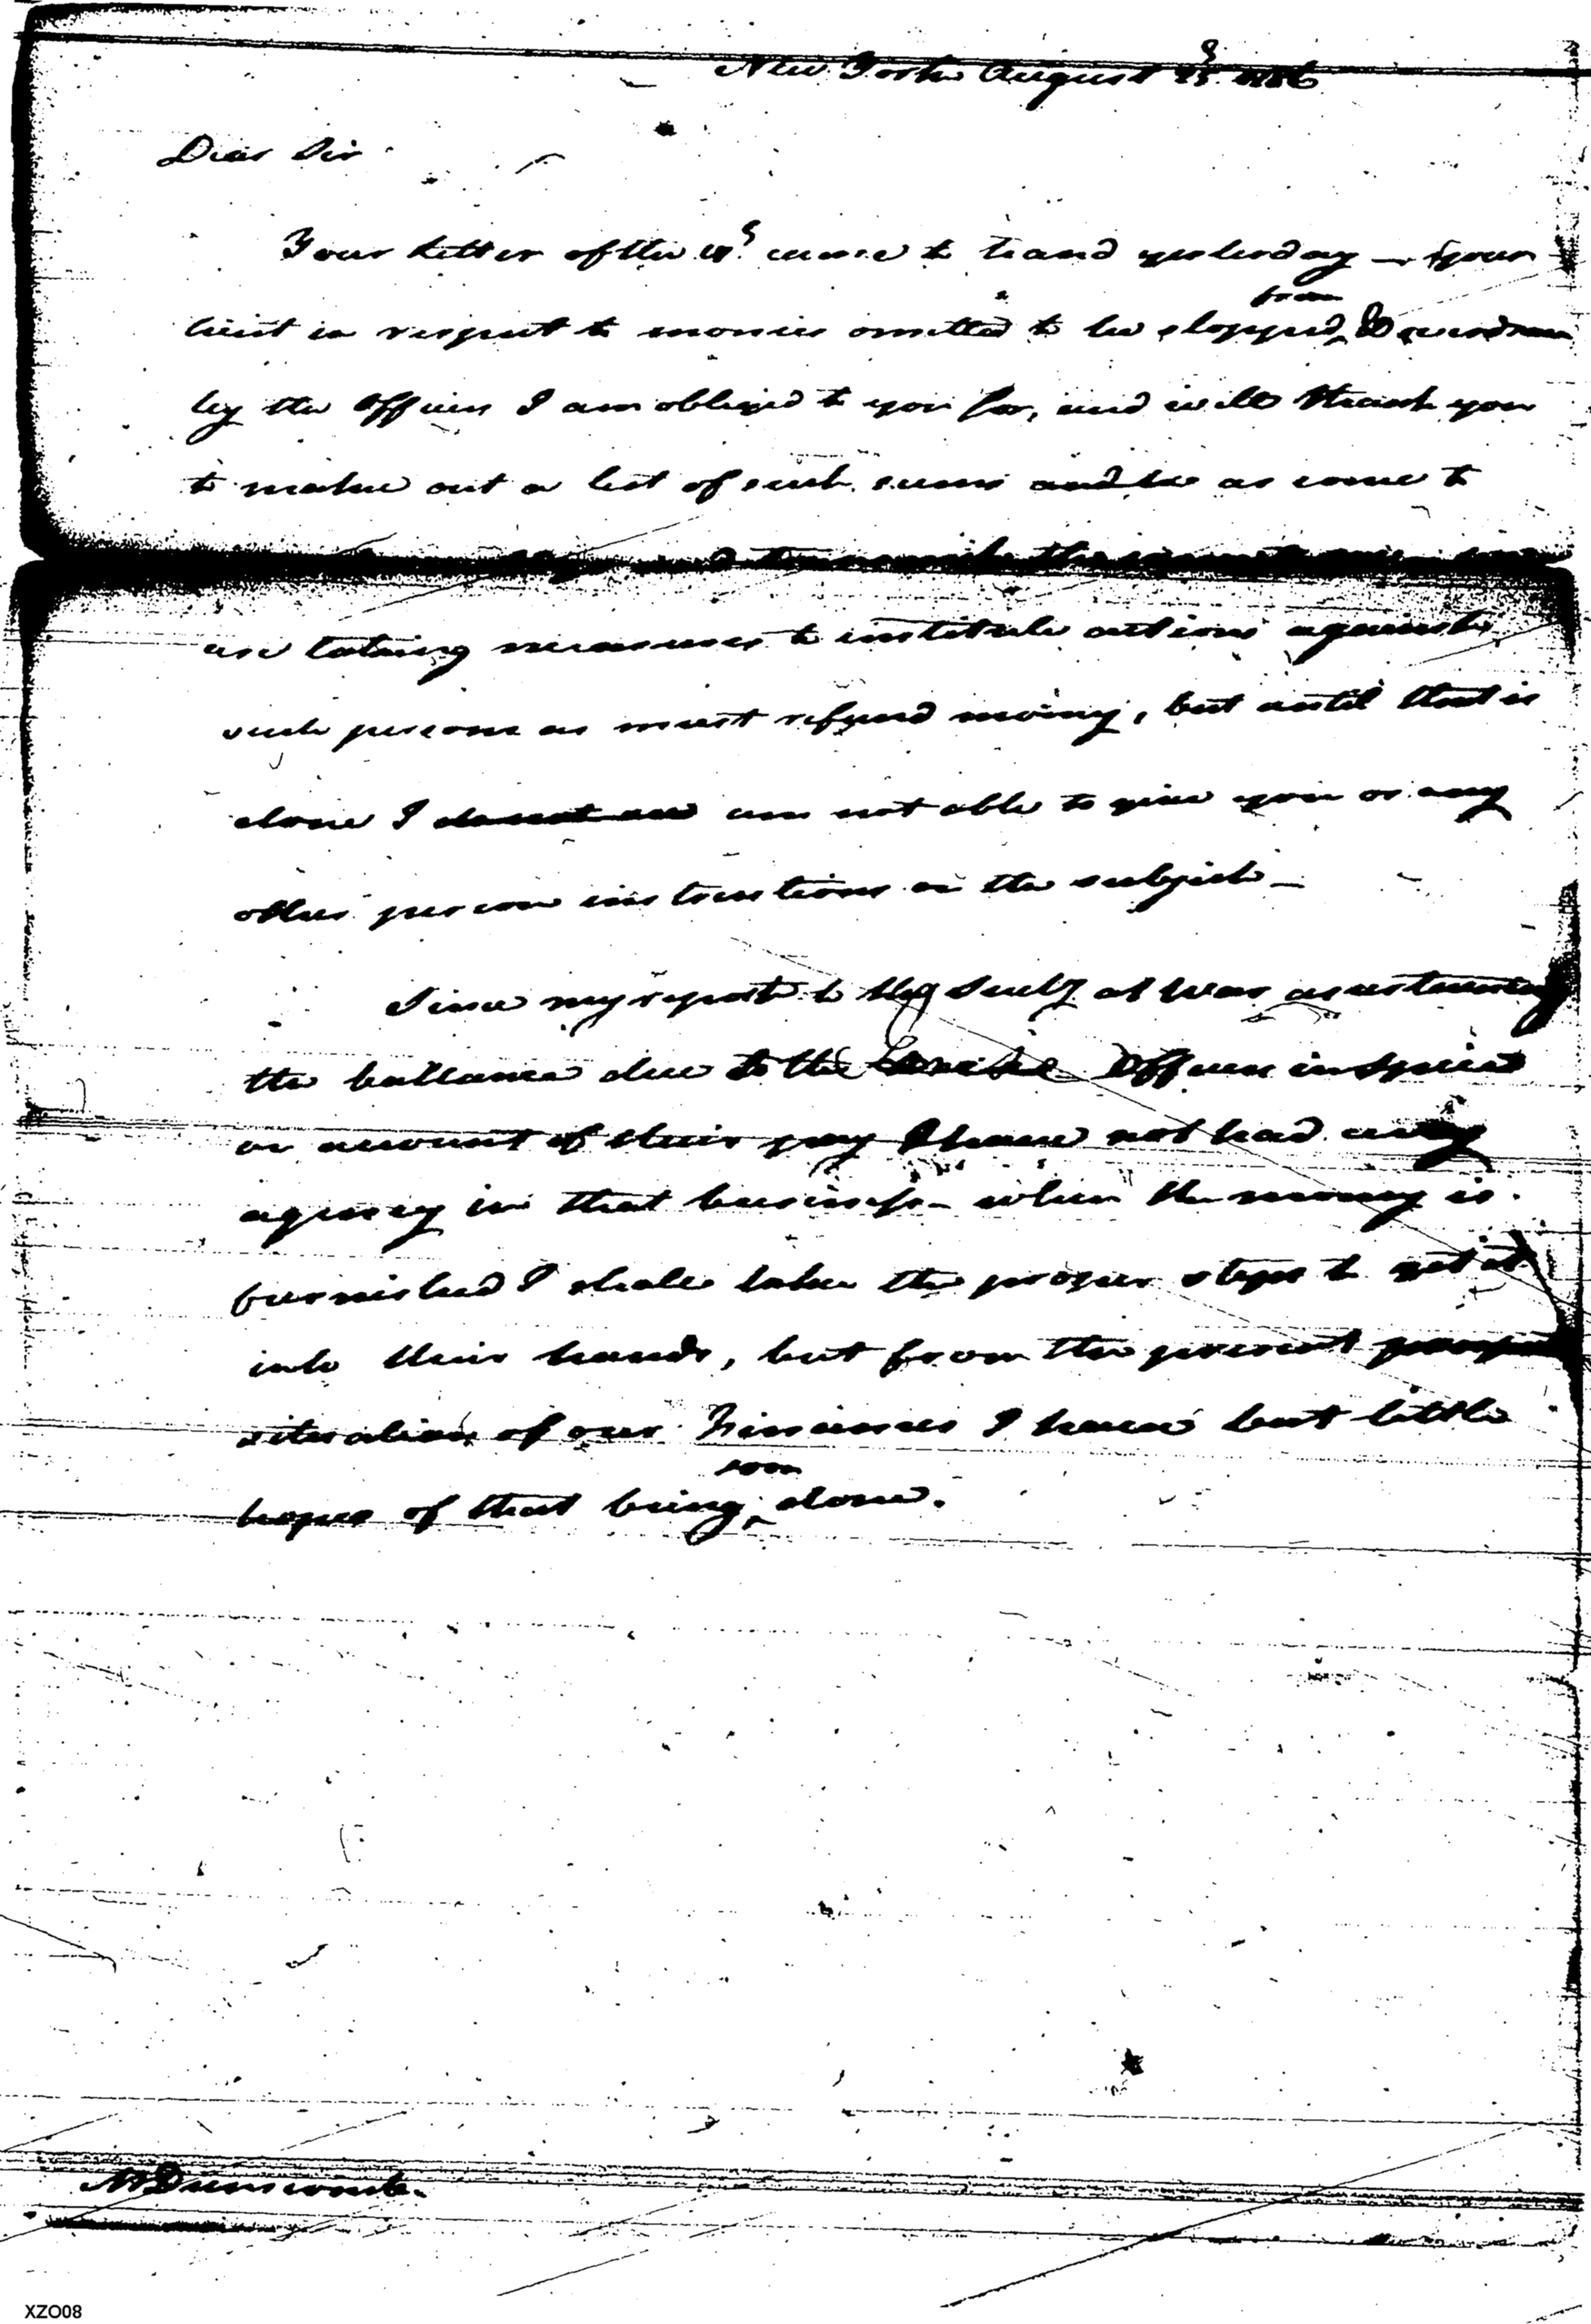 New York August 25 1786
Dear Sir
Your letter of the came to hand yesterday — your
hint in respect to monies omitted to be stopped from
by the officers I am obliged to you for, and will thank you
to make out a list of such sums and be as come to
are taking measures to institute actions against
such persons as must refund money, but until that is
done I do not see am not able to give you or any
other person instructions on the subject —
Since my report to the Secty at War ascertaining
the ballance due to the Officers in Specie
on account of their pay I have not had any
agency in that business — when the money is
furnished I shall take the proper steps to get it
into their hands, but from the present
situation of our Finances I have but little
hopes of that being soon done.
Mr Dunscomb
XZO08